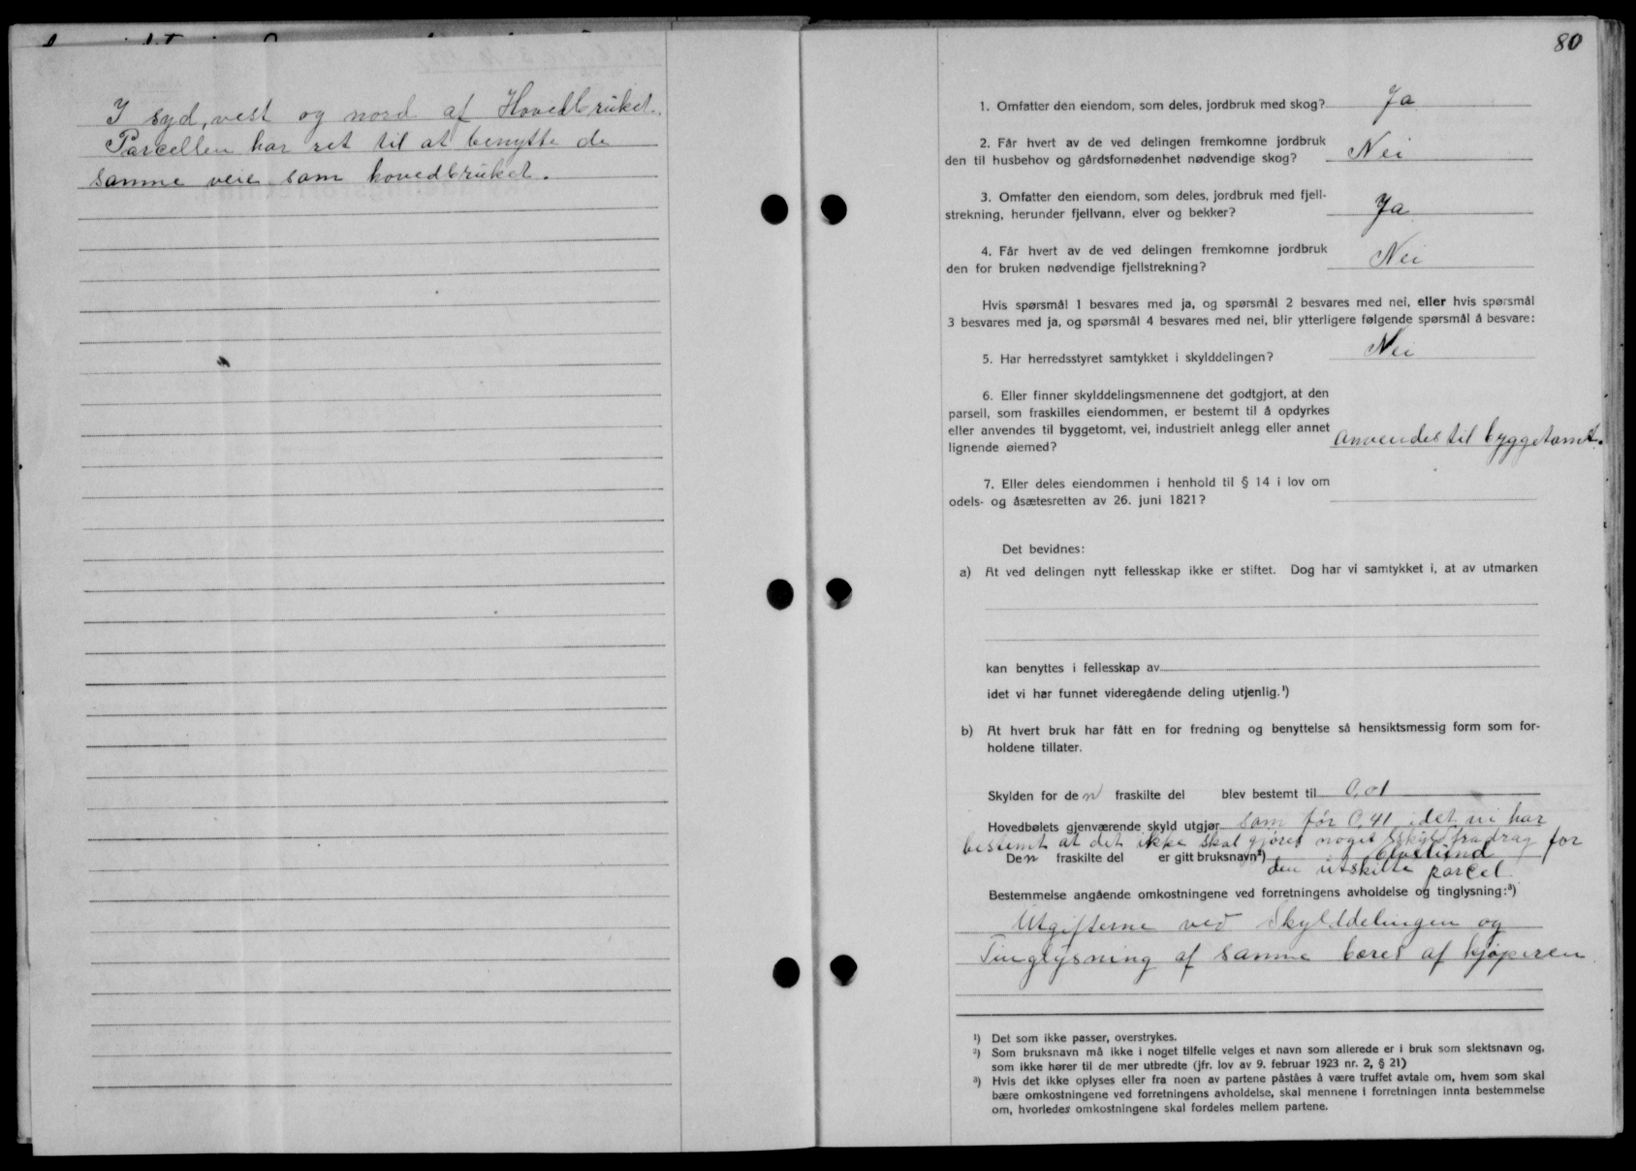 I syd, vest og nord af Hovedbruket.
Parcellen har ret til at benytte de
samme veie som hovedbruket.
80
1. Omfatter den eiendom, som deles, jordbruk med skog? Ja
2. Får hvert av de ved delingen fremkomne jordbruk
den til husbehov og gårdsfornødenhet nødvendige skog? Nei
3. Omfatter den eiendom, som deles, jordbruk med fjell-
strekning, herunder fjellvann, elver og bekker? Ja
4. Får hvert av de ved delingen fremkomne jordbruk
den for bruken nødvendige fjellstrekning? Nei
Hvis spørsmål 1 besvares med ja, og spørsmål 2 besvares med nei, eller hvis spørsmål
3 besvares med ja, og spørsmål 4 besvares med nei, blir ytterligere følgende spørsmål å besvare:
5. Har herredsstyret samtykket i skylddelingen? Nei
6. Eller finner skylddelingsmennene det godtgjort, at den
parsell, som fraskilles eiendommen, er bestemt til å opdyrkes
eller anvendes til byggetomt, vei, industrielt anlegg eller annet
lignende øiemed? anvendes til byggetomt.
7. Eller deles eiendommen i henhold til § 14 i lov om
odels- og åsætesretten av 26. juni 1821?
Det bevidnes:
a) At ved delingen nytt fellesskap ikke er stiftet. Dog har vi samtykket i, at av utmarken
kan benyttes i fellesskap av
idet vi har funnet videregående deling utjenlig.¹)
b) At hvert bruk har fått en for fredning og benyttelse så hensiktsmessig form som for-
holdene tillater.
Skylden for den fraskilte del blev bestemt til 0,01
Hovedbølets gjenværende skyld utgjør som før 0,41 idet vi har
bestemt at det ikke skal gjøres noget skyldfradrag for
Den fraskilte del er gitt bruksnavn²)
den utskilte parcel
Bestemmelse angående omkostningene ved forretningens avholdelse og tinglysning:³)
Utgifterne ved Skylddelingen og
Tinglysning af samme bæres af kjøperen
¹) Det som ikke passer, overstrykes.
²) Som bruksnavn må ikke i noget tilfelle velges et navn som allerede er i bruk som slektsnavn og,
som ikke hører til de mer utbredte (jfr. lov av 9. februar 1923 nr. 2, § 21)
³) Hvis det ikke oplyses eller fra noen av partene påståes å være truffet avtale om, hvem som skal
bære omkostningene ved forretningens avholdelse, skal mennene i forretningen innta bestemmelse
om, hvorledes omkostningene skal fordeles mellem partene.